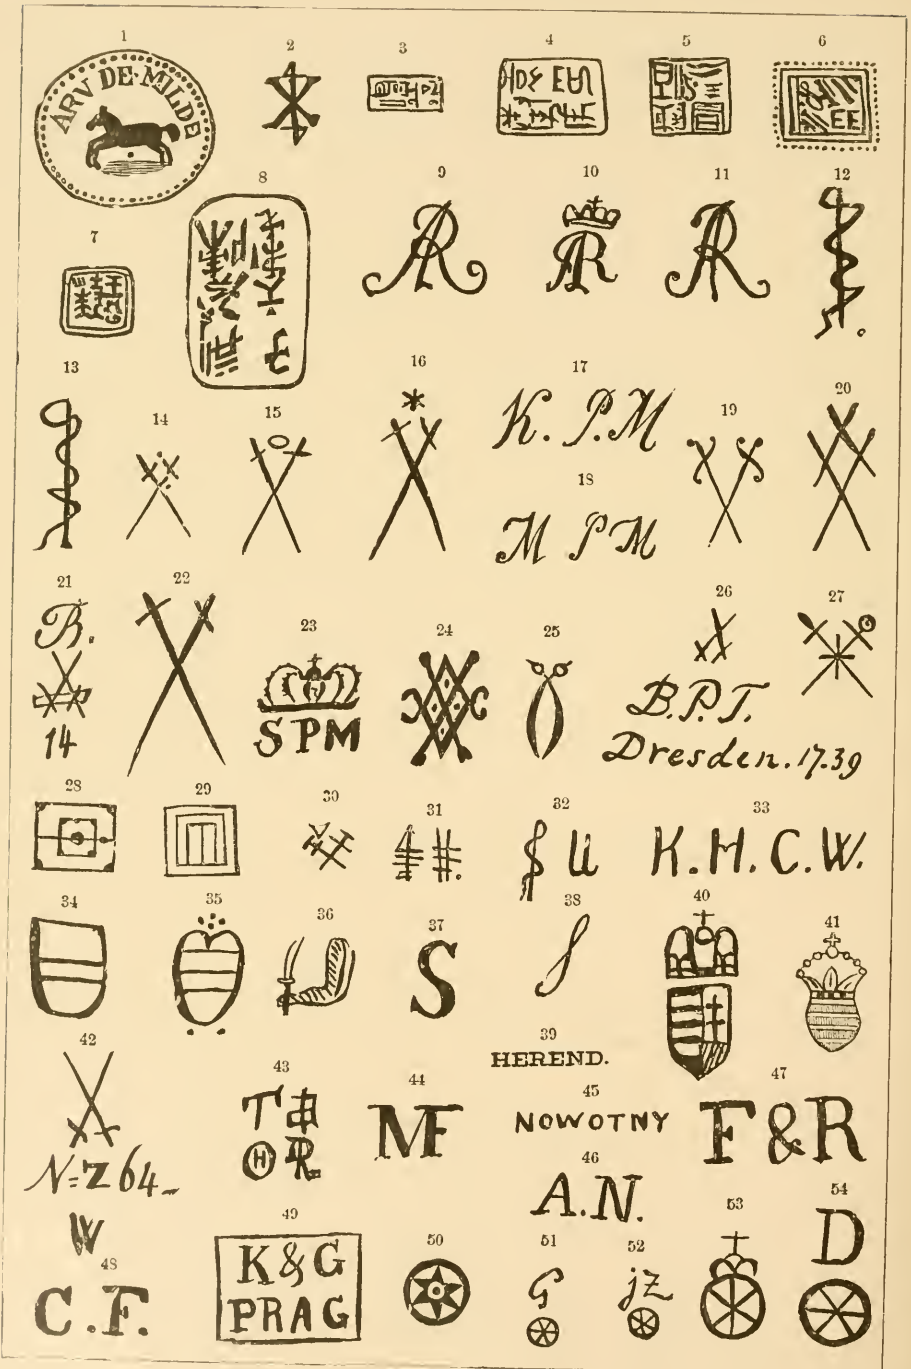 1
2
3
4
5
6
ARV DE·MILDE
7
8
9
AR
10
AR
11
AR
12
13
14
15
16
17
K. P. M
18
M P M
19
20
21
B.
14
22
23
SPM
24
25
26
B.P.T.
Dresden. 17.39
27
28
29
30
31
32
S U
33
K.H.C.W.
34
35
36
37
S
38
S
39
HEREND.
40
41
42
N=Z 64_
W
43
T
H R
44
MF
45
NOWOTNY
46
A.N.
47
F&R
48
C.F.
49
K&G
PRAG
50
51
G
52
jZ
53
54
D